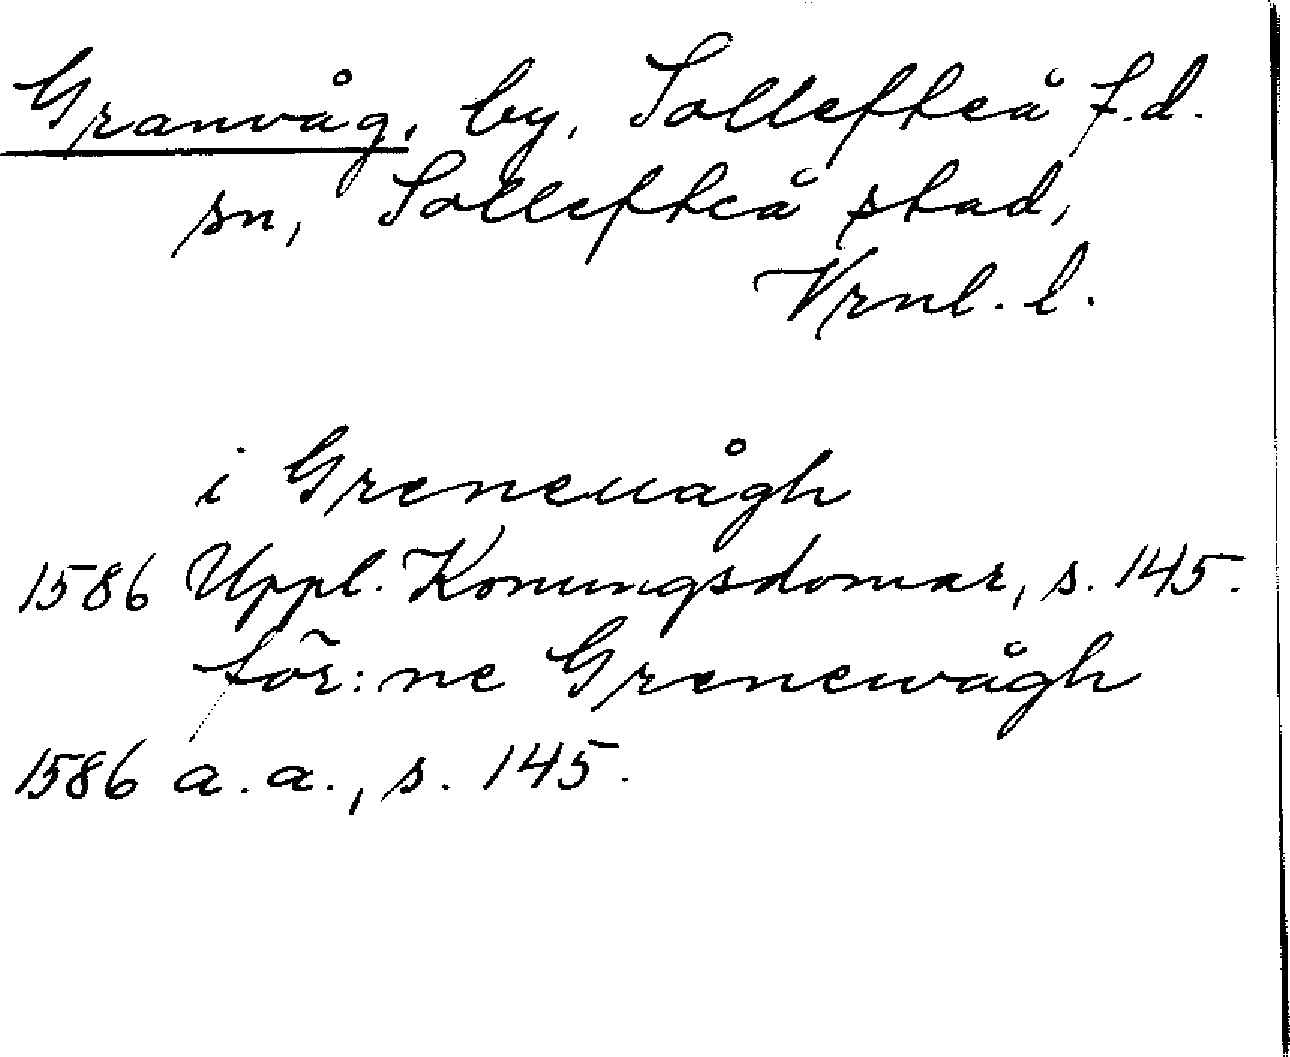 Granvåg, by, Sollefteå f.d.
sn, Sollefteå stad,
Vrnl. l.
i Greneuågh
1586 Uppl. Konungsdomar, s. 145.
för:ne Grenewågh
1586 a.a., s. 145.